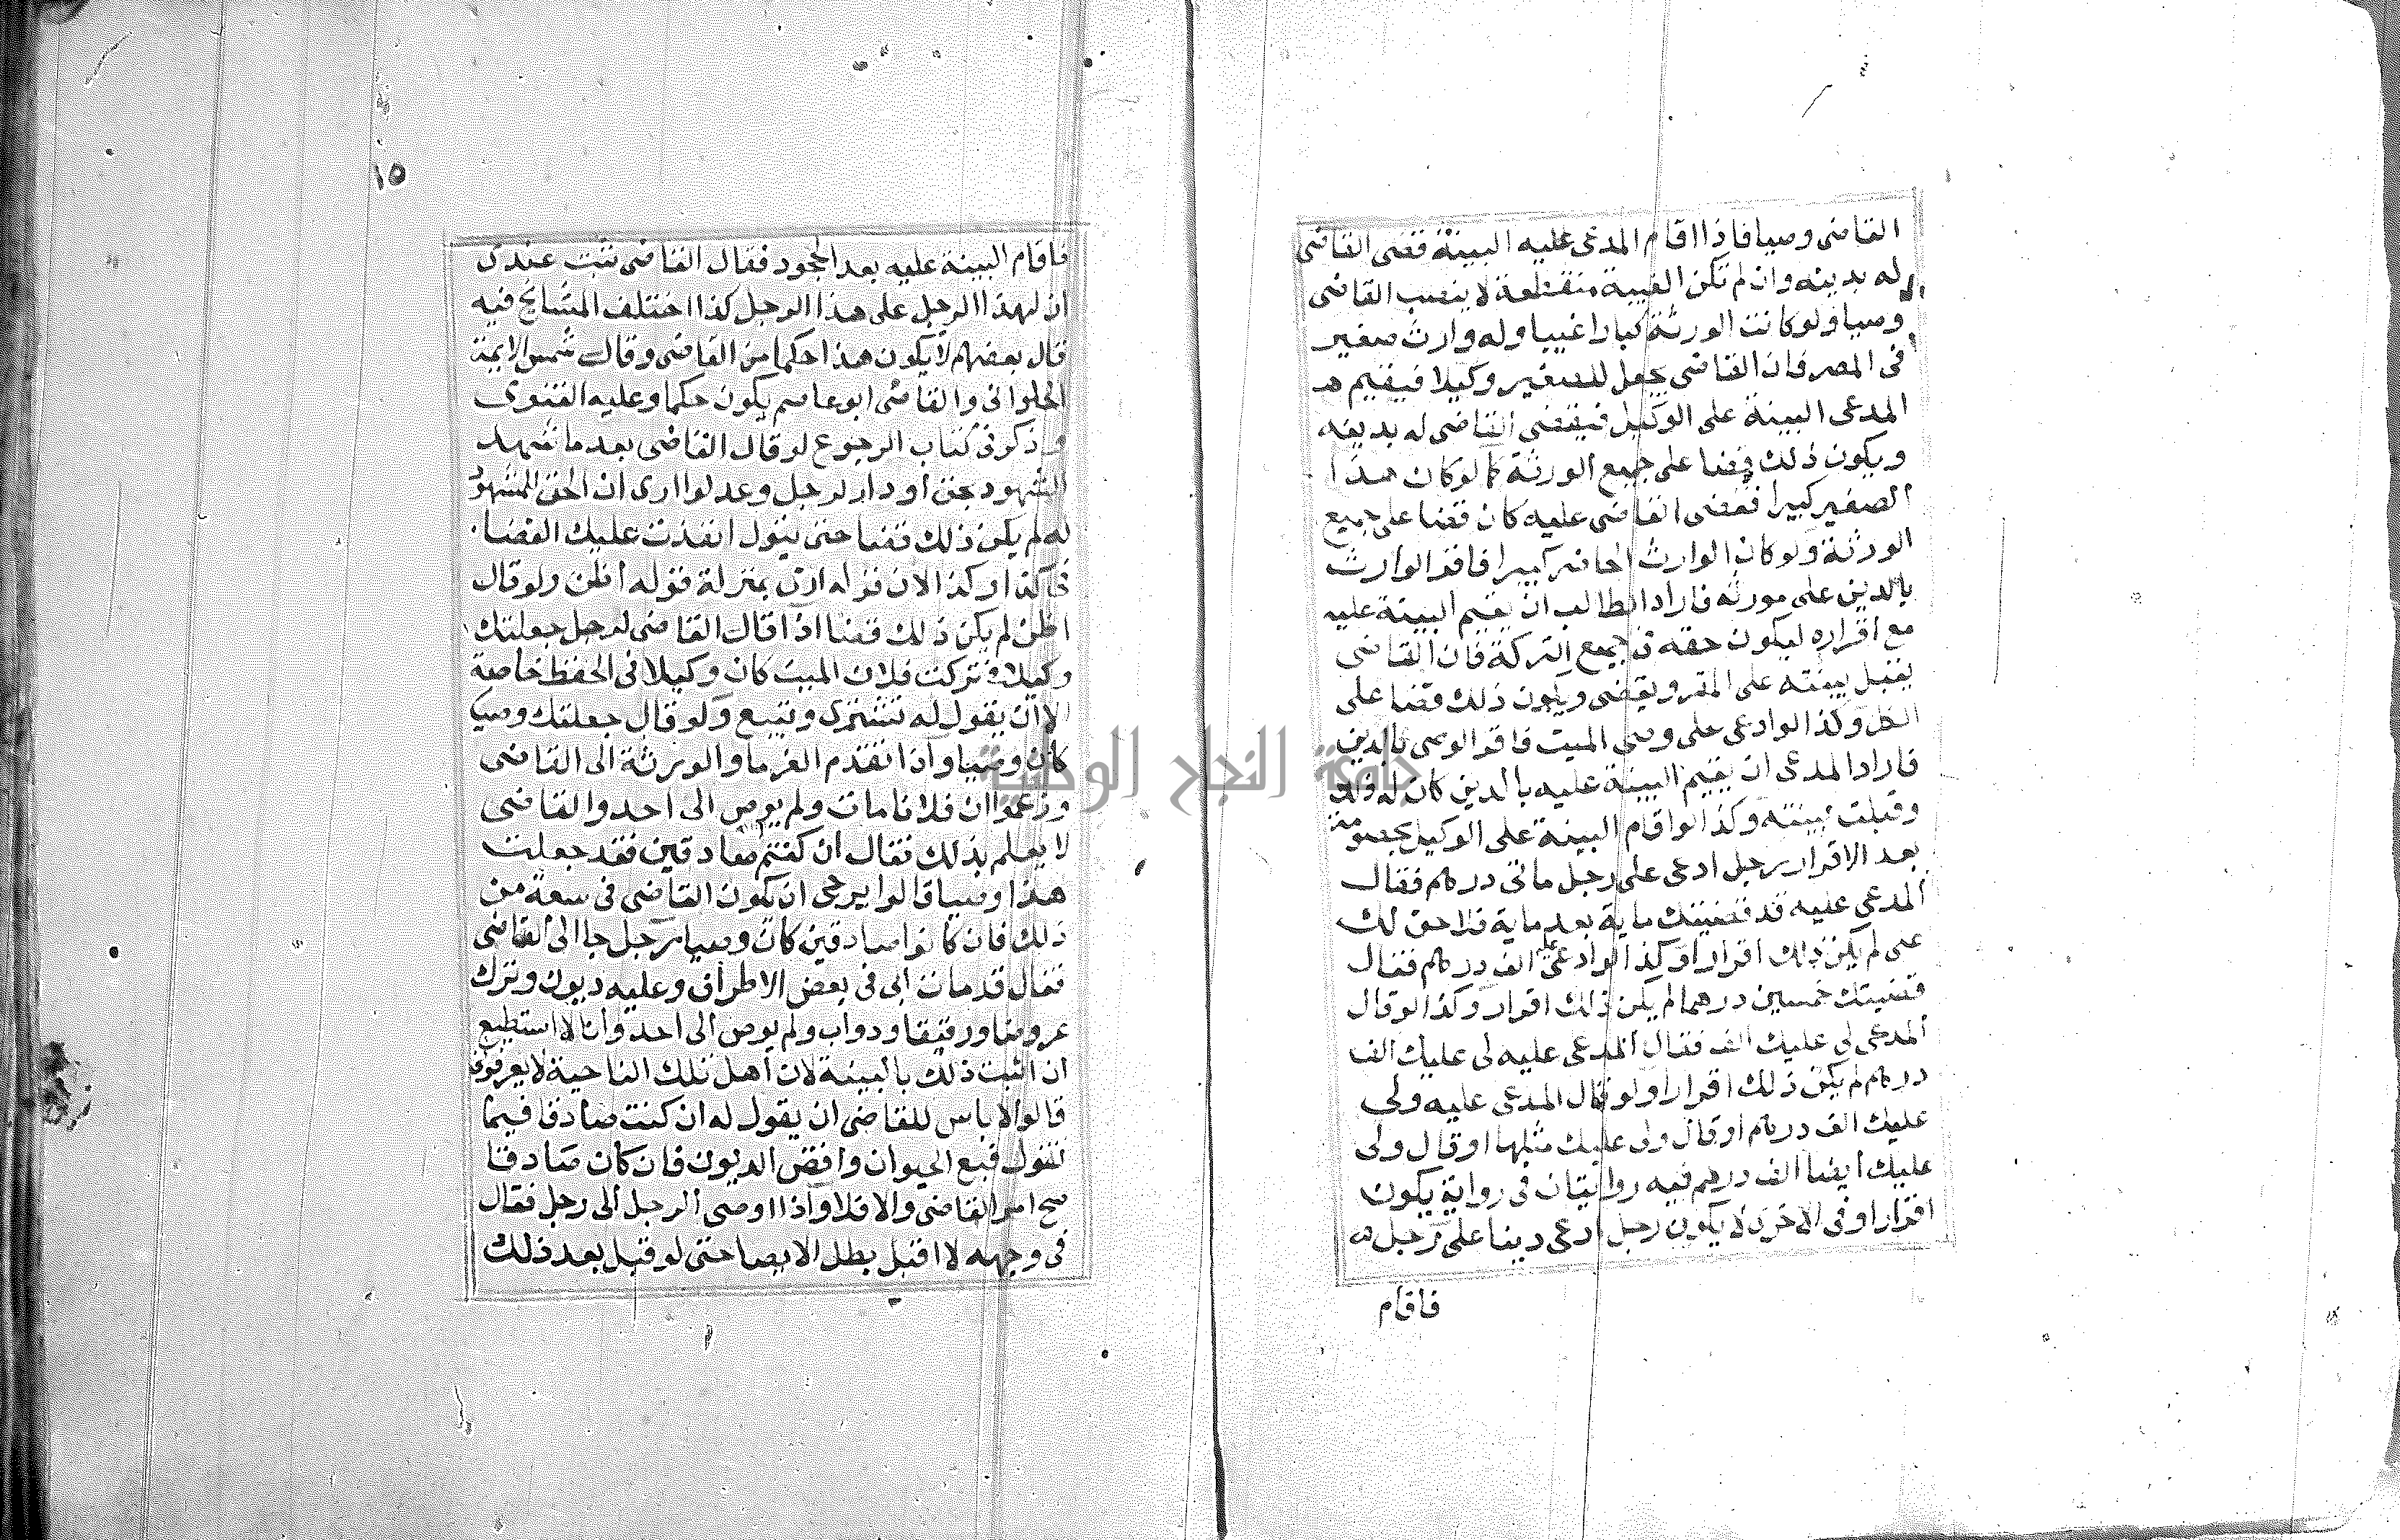 القاضى وصيا فاذا اقام المدعى عليه البينة قضى القاضى
له بدينه وان لم تكن الغيبة منقطعة لا ينصب القاضى
وصيا ولو كانت الورثة كبارا غيبا وله وارث صغير
فى المصر فان القاضى يجعل للصغير وكيلا فيقيم
المدعى البينة على الوكيل فيقضى القاضى له بدينه
ويكون ذلك قضا على جميع الورثة كما لو كان هذا
الصغير كبيرا فقضى القاضى عليه كان قضا على جميع
الورثة ولو كان الوارث الحاضر كبيرا فاقر الوارث
بالدين على مورثه فاراد الطالب ان يقيم البينة عليه
مع اقراره ليكون حقه فى جميع التركة فان القاضى
يقبل بينته على المقر ويقضى ويكون ذلك قضا على
الكل وكذا لو ادعى على وصى الميت فاقر الوصى بالدين
فاراد المدعى ان يقيم البينة عليه بالدين كان له ذلك
وقبلت بينته وكذا لو اقام البينة على الوكيل بخصومته
بعد الاقرار رجل ادعى على رجل ماتى درهم فقال
المدعى عليه قد قضيتك ماية بعد ماية فلا حق لك
على لم يكن ذلك اقرارا وكذا لو ادعى عليه الف درهم فقال
قضيتك خمسين درهما لم يكن ذلك اقرار وكذا لو قال
المدعى لى عليك الف فقال المدعى عليه لى عليك الف
درهم لم يكن ذلك اقرارا ولو قال المدعى عليه ولى
عليك الف درهم او قال ولى عليك مثلها او قال ولى
عليك ايضا الف درهم فيه روايتان فى رواية يكون
اقرارا وفى الاخرى لا يكون رجل ادعى دينا على رجل
فاقام
١٥
فاقام البينة عليه بعد الجحود فقال القاضى ثبت عندى
ان لهذا الرجل على هذا الرجل كذا اختلف المشايخ فيه
قال بعضهم لا يكون هذا حكما من القاضى وقال شمس الايمة
الحلوانى والقاضى ابو عاصم يكون حكما وعليه الفتوى
وذكر فى كتاب الرجوع لو قال القاضى بعد ما شهد
الشهود بحق او دار لرجل وعدلوا ارى ان الحق للمشهود
له لم يكن ذلك قضا حتى يقول انفذت عليك القضا
فى كذا وكذا لان قوله ارى بمنزلة قوله اظن ولو قال
اظن لم يكن ذلك قضا اذا قال القاضى لرجل جعلتك
وكيلا فى تركت فلان الميت كان وكيلا فى الحفظ خاصة
الا ان يقول له تشترى وتبيع ولو قال جعلتك وصيا
كان وصيا واذا تقدم الغرما والورثة الى القاضى
وزعموا ان فلانا مات ولم يوص الى احد والقاضى
لا يعلم بذلك فقال ان كنتم صادقين فقد جعلت
هذا وصيا قالوا يرجى ان يكون القاضى فى سعة من
ذلك فان كانوا صادقين كان وصيا رجل جا الى القاضى
فقال قد مات ابى فى بعض الاطراف وعليه ديون وترك
عروضا ورقيقا ودواب ولم يوص الى احد وانا لا استطيع
ان اثبت ذلك بالبينة لان اهل تلك الناحية لا يعرفونى
قالوا لا باس للقاضى ان يقول له ان كنت صادقا فيما
تقول فبع الحيوان واقض الديون فان كان صادقا
صح امر القاضى والا فلا واذا اوصى الرجل الى رجل فقال
فى وجهه لا اقبل بطل الايصا حتى لو قبل بعد ذلك
جامعة النجاح الوطنية